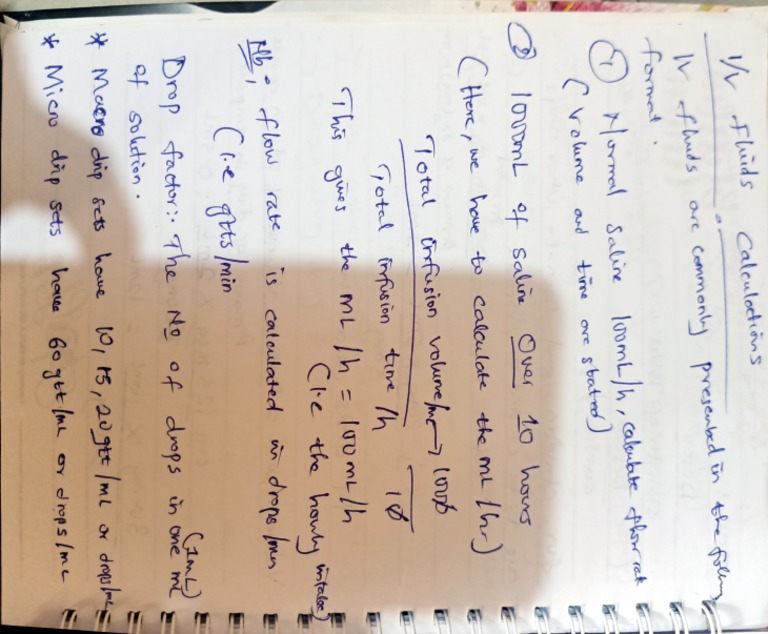 I/V fluids Calculations
IV fluids are commonly presented in the
format.
① Normal saline 100mL/h, calculate flow rate
(volume and time are stated)
② 1000mL of saline over 10 hours
(Here, we have to calculate the mL/hr)
Total infusion volume/mL → 1000
Total infusion time/h 10
This gives the mL/h = 100mL/h
(i.e the hourly intake)
Nb: flow rate is calculated in drops/min
(i.e gtts/min
Drop factor:- The No of drops in one mL (1mL)
of solution.
* Macro drip sets have 10, 15, 20gtt/mL or drops/mL
* Micro drip sets have 60gtt/mL or drops/mL